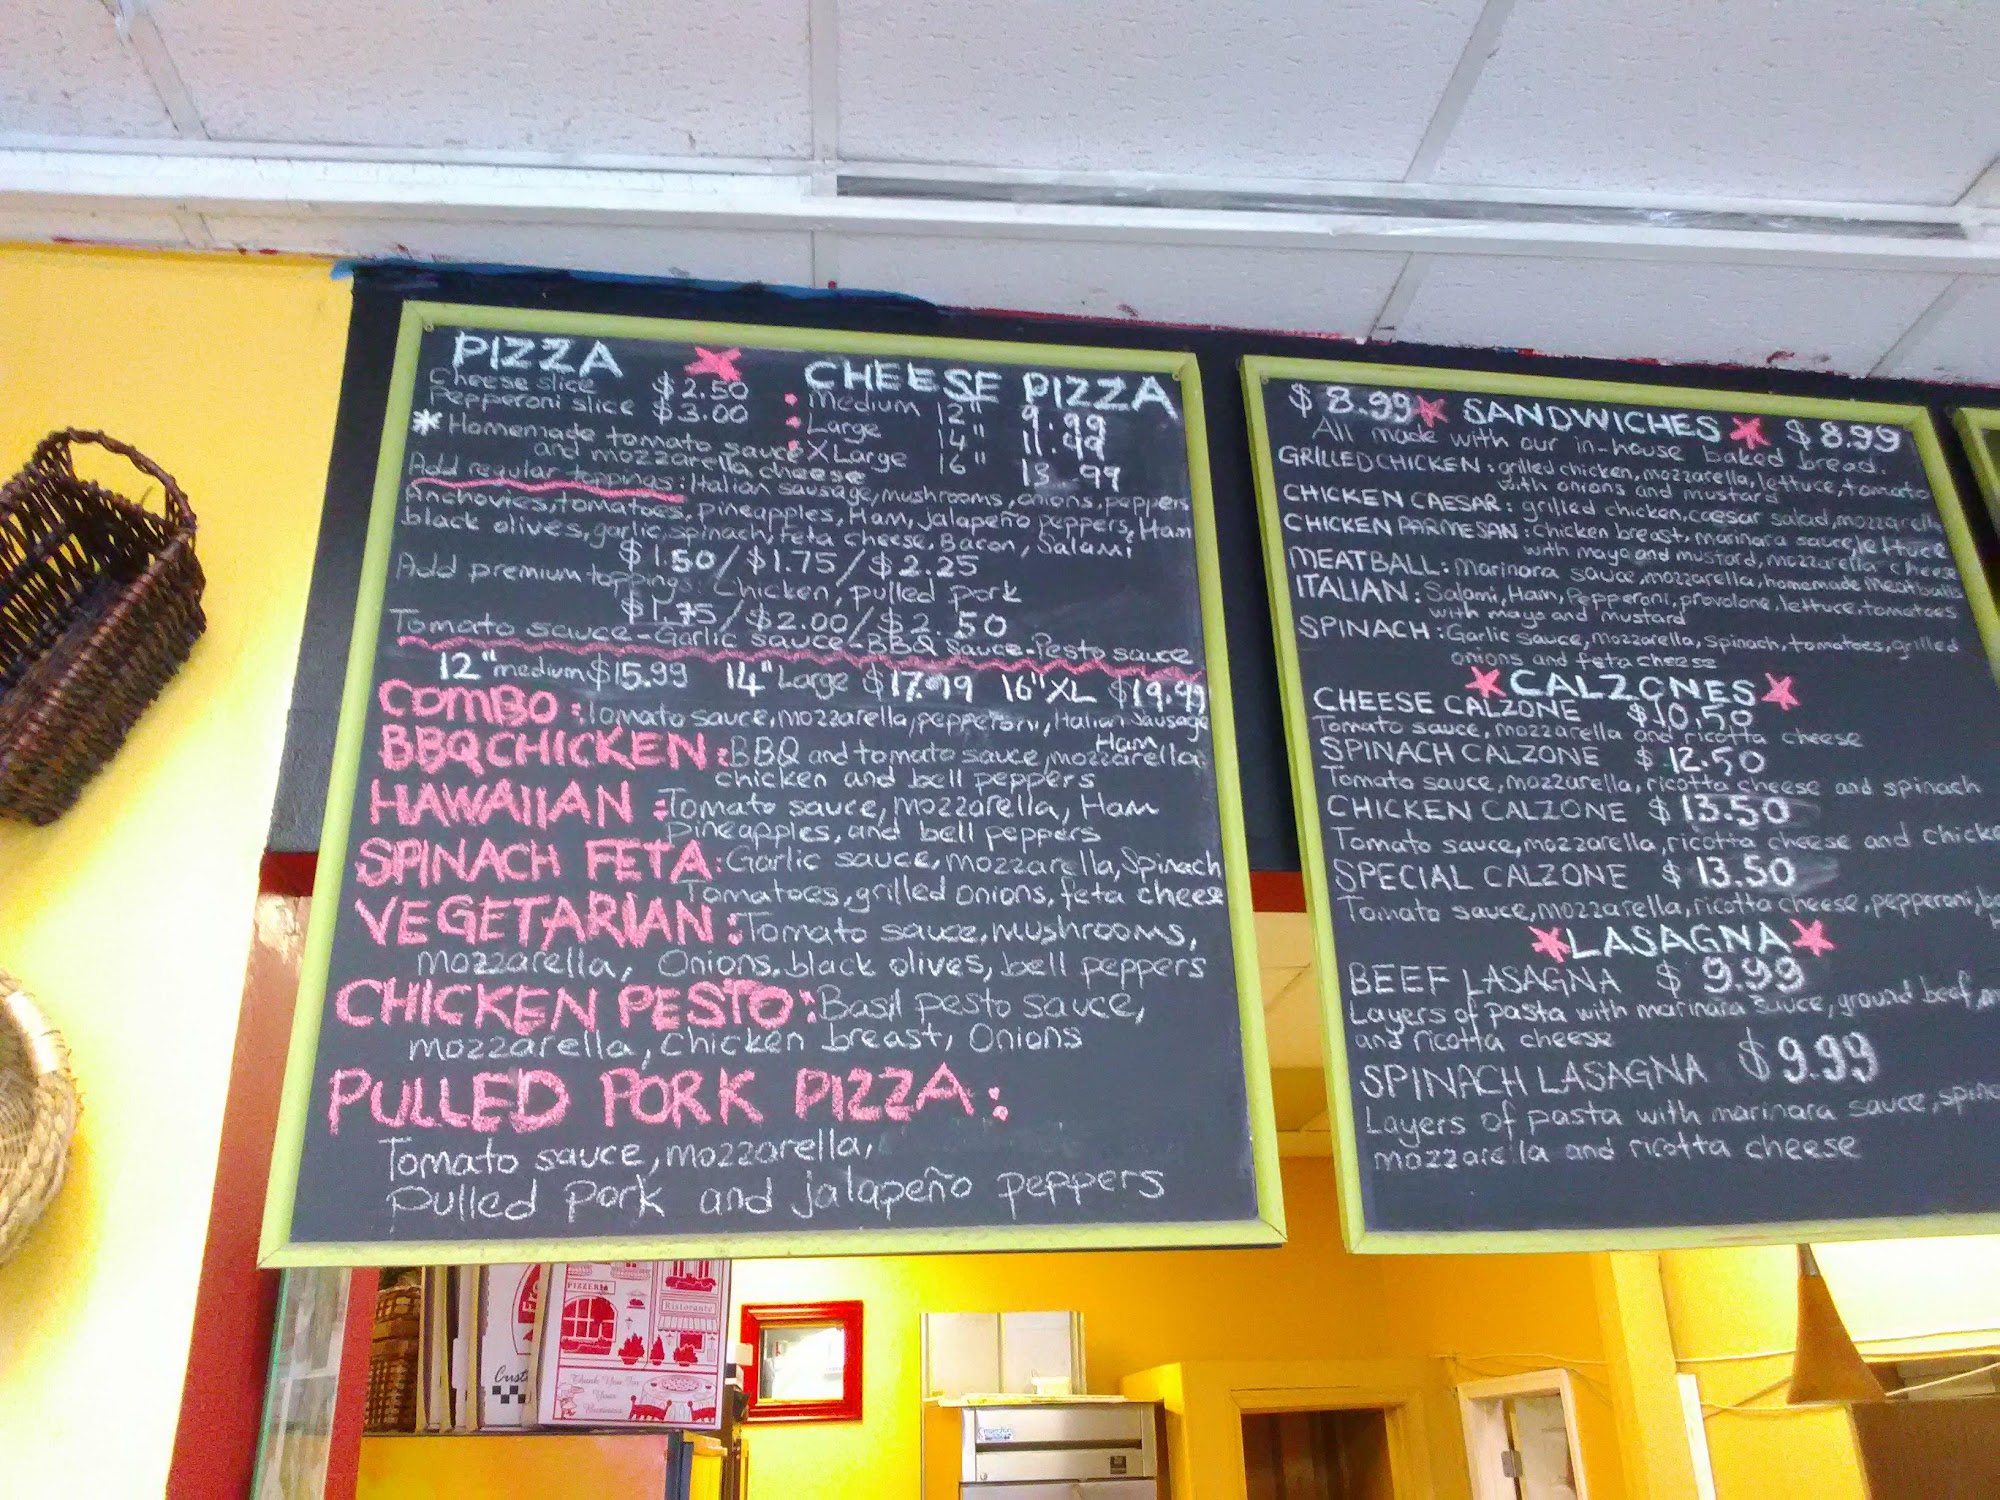 PIZZA
Cheese slice $2.50
Pepperoni slice $3.00
* Homemade tomato sauce
and mozzarella cheese
CHEESE PIZZA
Medium 12" 9.99
Large 14" 11.99
X Large 16" 13.99
Add regular toppings: Italian sausage, mushrooms, onions, peppers
Anchovies, tomatoes, pineapples, Ham, jalapeño peppers, Ham
black olives, garlic, spinach, feta cheese, Bacon, Salami
$1.50/$1.75/$2.25
Add premium toppings: Chicken, pulled pork
$1.75/$2.00/$2.50
Tomato sauce-Garlic sauce-BBQ sauce-Pesto sauce
12" medium $15.99 14" Large $17.99 16" XL $19.99
COMBO: Tomato sauce, mozzarella, pepperoni, Italian Sausage
Ham
BBQ CHICKEN: BBQ and tomato sauce, mozzarella
chicken and bell peppers
HAWAIIAN: Tomato sauce, mozzarella, Ham
pineapples, and bell peppers
SPINACH FETA: Garlic sauce, mozzarella, Spinach
Tomatoes, grilled onions, feta cheese
VEGETARIAN: Tomato sauce, mushrooms,
mozzarella, Onions, black olives, bell peppers
CHICKEN PESTO: Basil pesto sauce,
mozzarella, chicken breast, Onions
PULLED PORK PIZZA:
Tomato sauce, mozzarella,
pulled pork and jalapeño peppers
$8.99 SANDWICHES $8.99
All made with our in-house baked bread.
GRILLED CHICKEN: grilled chicken, mozzarella, lettuce, tomato
with onions and mustard
CHICKEN CAESAR: grilled chicken, caesar salad, mozzarella
CHICKEN PARMESAN: chicken breast, marinara sauce, lettuce
with mayo and mustard, mozzarella cheese
MEATBALL: Marinara sauce, mozzarella, homemade meatballs
ITALIAN: Salami, Ham, Pepperoni, provolone, lettuce, tomatoes
with mayo and mustard
SPINACH: Garlic sauce, mozzarella, spinach, tomatoes, grilled
onions and feta cheese
CALZONES
CHEESE CALZONE $10.50
Tomato sauce, mozzarella and ricotta cheese
SPINACH CALZONE $12.50
Tomato sauce, mozzarella, ricotta cheese and spinach
CHICKEN CALZONE $13.50
Tomato sauce, mozzarella, ricotta cheese and chicke
SPECIAL CALZONE $13.50
Tomato sauce, mozzarella, ricotta cheese, pepperoni,
LASAGNA
BEEF LASAGNA $9.99
Layers of pasta with marinara sauce, ground beef,
and ricotta cheese
SPINACH LASAGNA $9.99
Layers of pasta with marinara sauce, spina
mozzarella and ricotta cheese
PIZZERIA
Ristorante
Thank You For
Your
Custo